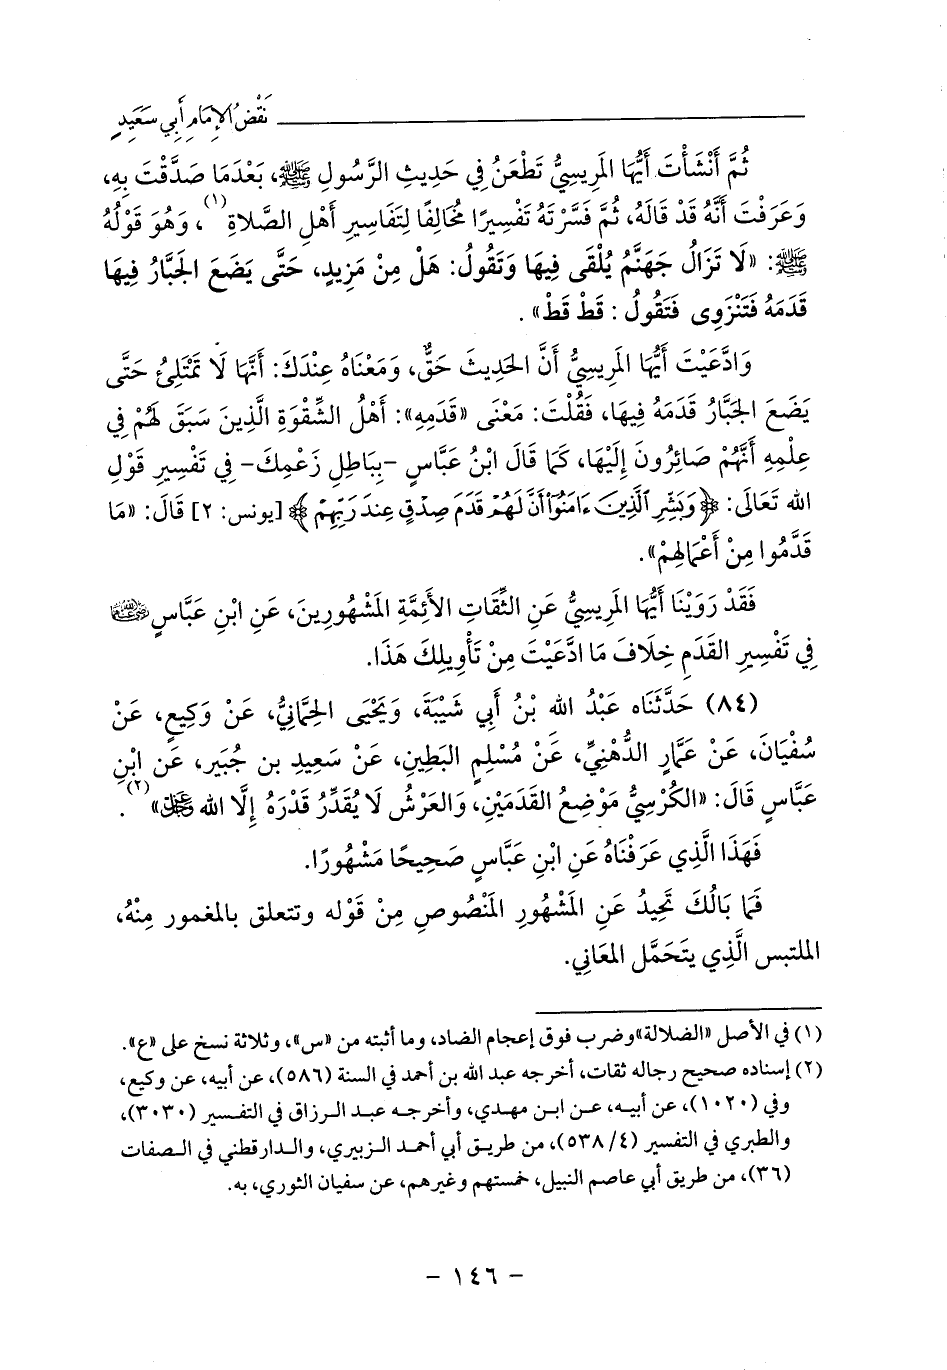 نَقْضُ الإِمَامِ أَبِي سَعِيدٍ
ثُمَّ أَنْشَأْتَ أَيُّهَا المَرِيسِيُّ تَطْعَنُ فِي حَدِيثِ الرَّسُولِ ﷺ، بَعْدَمَا صَدَّقْتَ بِهِ،
وَعَرَفْتَ أَنَّهُ قَدْ قَالَهُ، ثُمَّ فَسَّرْتَهُ تَفْسِيرًا مُخَالِفًا لِتَفَاسِيرِ أَهْلِ الصَّلَاةِ(١)، وَهُوَ قَوْلُهُ
ﷺ: «لَا تَزَالُ جَهَنَّمُ يُلْقَى فِيهَا وَتَقُولُ: هَلْ مِنْ مَزِيدٍ، حَتَّى يَضَعَ الجَبَّارُ فِيهَا
قَدَمَهُ فَتَنْزَوِى فَتَقُولُ: قَطْ قَطْ».
وَادَّعَيْتَ أَيُّهَا المَرِيسِيُّ أَنَّ الحَدِيثَ حَقٌّ، وَمَعْنَاهُ عِنْدَكَ: أَنَّهَا لَا تَمْتَلِئُ حَتَّى
يَضَعَ الجَبَّارُ قَدَمَهُ فِيهَا، فَقُلْتَ: مَعْنَى «قَدَمِهِ»: أَهْلُ الشِّقْوَةِ الَّذِينَ سَبَقَ لَهُمْ فِي
عِلْمِهِ أَنَّهُمْ صَائِرُونَ إِلَيْهَا، كَمَا قَالَ ابْنُ عَبَّاسٍ -بِبَاطِلِ زَعْمِكَ- فِي تَفْسِيرِ قَوْلِ
الله تَعَالَى: ﴿وَبَشِّرِ ٱلَّذِينَ ءَامَنُوٓاْ أَنَّ لَهُمْ قَدَمَ صِدْقٍ عِندَ رَبِّهِمْ﴾ [يونس: ٢] قَالَ: «مَا
قَدَّمُوا مِنْ أَعْمَالِهِمْ».
فَقَدْ رَوَيْنَا أَيُّهَا المَرِيسِيُّ عَنِ الثِّقَاتِ الأَئِمَّةِ المَشْهُورِينَ، عَنِ ابْنِ عَبَّاسٍ رضي الله عنهما
فِي تَفْسِيرِ القَدَمِ خِلَافَ مَا ادَّعَيْتَ مِنْ تَأْوِيلِكَ هَذَا.
(٨٤) حَدَّثَنَاه عَبْدُ الله بْنُ أَبِي شَيْبَةَ، وَيَحْيَى الحِمَّانِيُّ، عَنْ وَكِيعٍ، عَنْ
سُفْيَانَ، عَنْ عَمَّارٍ الدُّهْنِيِّ، عَنْ مُسْلِمٍ البَطِينِ، عَنْ سَعِيدِ بن جُبَير، عَن ابْنِ
عَبَّاسٍ قَالَ: «الكُرْسِيُّ مَوْضِعُ القَدَمَيْنِ، وَالعَرْشُ لَا يُقَدِّرُ قَدْرَهُ إِلَّا الله عز وجل»(٢).
فَهَذَا الَّذِي عَرَفْنَاهُ عَنِ ابْنِ عَبَّاسٍ صَحِيحًا مَشْهُورًا.
فَمَا بَالُكَ تَحِيدُ عَنِ المَشْهُورِ المَنْصُوصِ مِنْ قَوْلِه وتتعلق بالمغمور مِنْهُ،
الملتبس الَّذِي يتَحَمَّل المعَاني.
(١) في الأصل «الضلالة»وضرب فوق إعجام الضاد، وما أثبته من «س»، وثلاثة نسخ على «ع».
(٢) إسناده صحيح رجاله ثقات، أخرجه عبد الله بن أحمد في السنة (٥٨٦)، عن أبيه، عن وكيع،
وفي (١٠٢٠)، عن أبيه، عن ابن مهدي، وأخرجه عبد الرزاق في التفسير (٣٠٣٠)،
والطبري في التفسير (٤/ ٥٣٨)، من طريق أبي أحمد الزبيري، والدارقطني في الصفات
(٣٦)، من طريق أبي عاصم النبيل، خمستهم وغيرهم، عن سفيان الثوري، به.
- ١٤٦ -